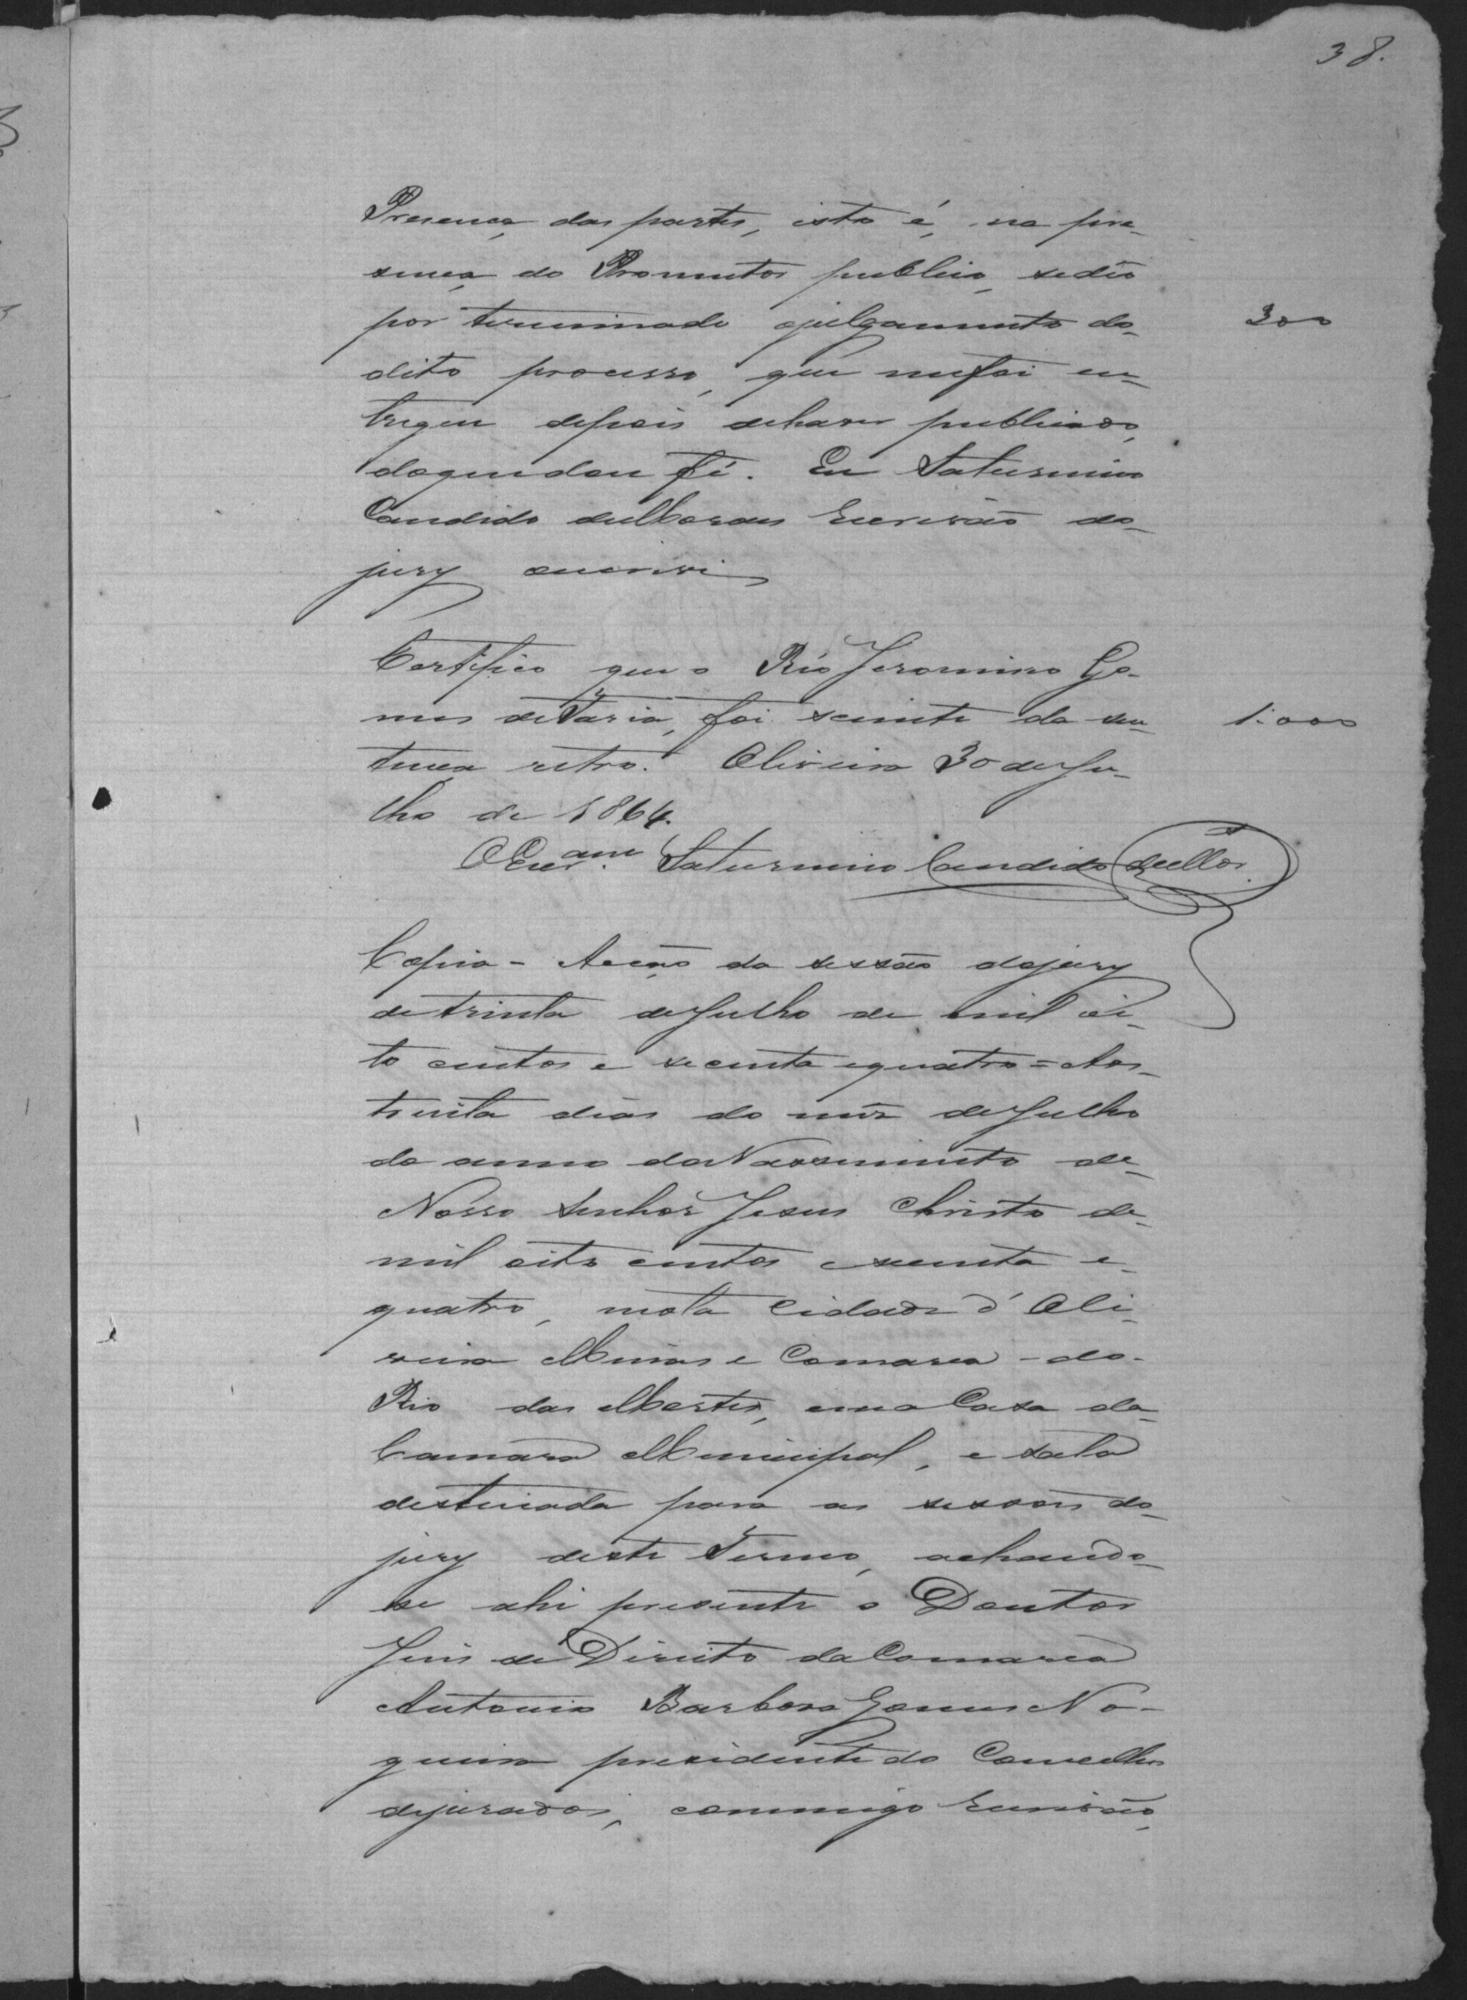 38.
Presença das partes, isto é, na pre-
sença do Promutor publico, sedêo
por terminado ojulgamento do- 300
dito processo, que mefoi en-
tregue depois dehaver publicado,
doquedou fé. Eu Saturnino
Candido deMoraes Escrivão do-
jury escrevi
Certifico que o Réo Jeronimo Go-
mes deFaria, foi sciente da sen- 1:000
tença retro. Oliveira 30 deJu-
lho de 1864.
OEscr.am Saturnino Candido deMor.
Copia - Acção da sessão dojury
detrinta deJulho de mil oi-
to centos e secenta equatro = Aos-
trinta dias do mez deJulho
do anno doNascimento de-
Nosso Senhor Jesus Christo de-
mil oito centos esecenta e-
quatro, nesta Cidade d'Oli-
veira Minas e Comarca - do-
Rio das Mortes, emaCasa da-
Camara Municipal, e sala
destinada para as sessões do-
jury deste Termo, achando-
se ahi presente o Doutor
Juis deDireito daComarca
Antonio Barbosa Gomes No-
gueira presidente do Concelho
dejurados, commigo Escrivão,